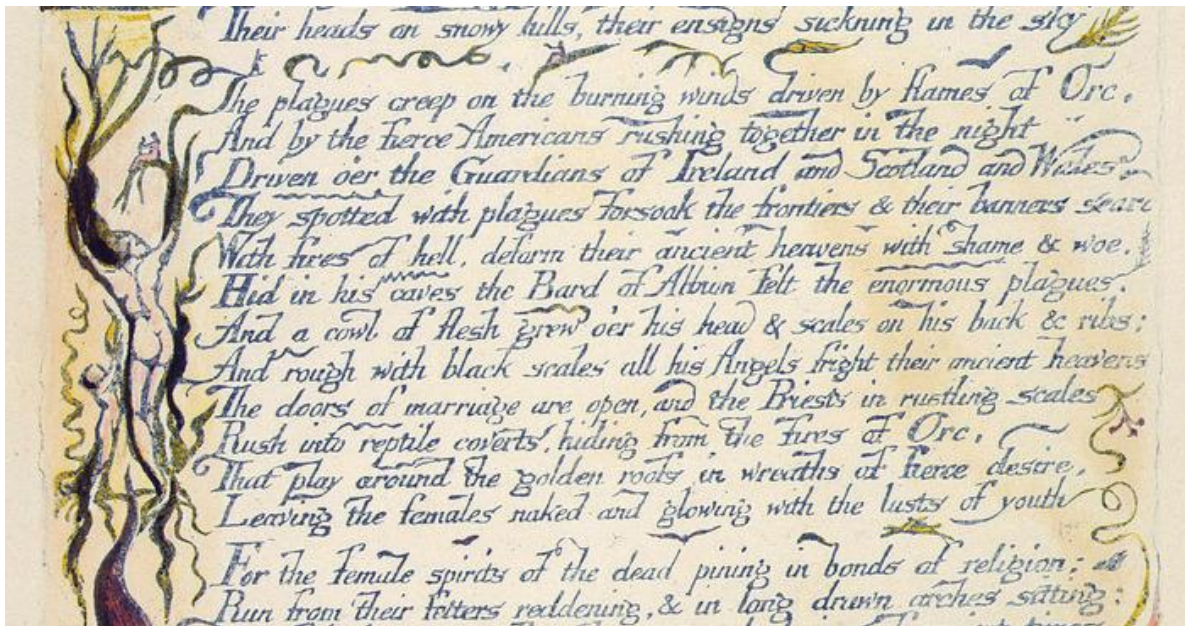 Their heads on snowy hills, their ensigns sickning in the sky
The plagues creep on the burning winds driven by flames of Orc,
And by the fierce Americans rushing together in the night
Driven o'er the Guardians of Ireland and Scotland and Wales
They spotted with plagues forsook the frontiers & their banners seard
With fires of hell, deform their ancient heavens with shame & woe.
Hid in his caves the Bard of Albion felt the enormous plagues.
And a cowl of flesh grew o'er his head & scales on his back & ribs;
And rough with black scales all his Angels fright their ancient heavens
The doors of marriage are open, and the Priests in rustling scales
Rush into reptile coverts, hiding from the fires of Orc,
That play around the golden roofs in wreaths of fierce desire,
Leaving the females naked and glowing with the lusts of youth
For the female spirits of the dead pining in bonds of religion;
Run from their fetters reddening, & in long drawn arches sitting: